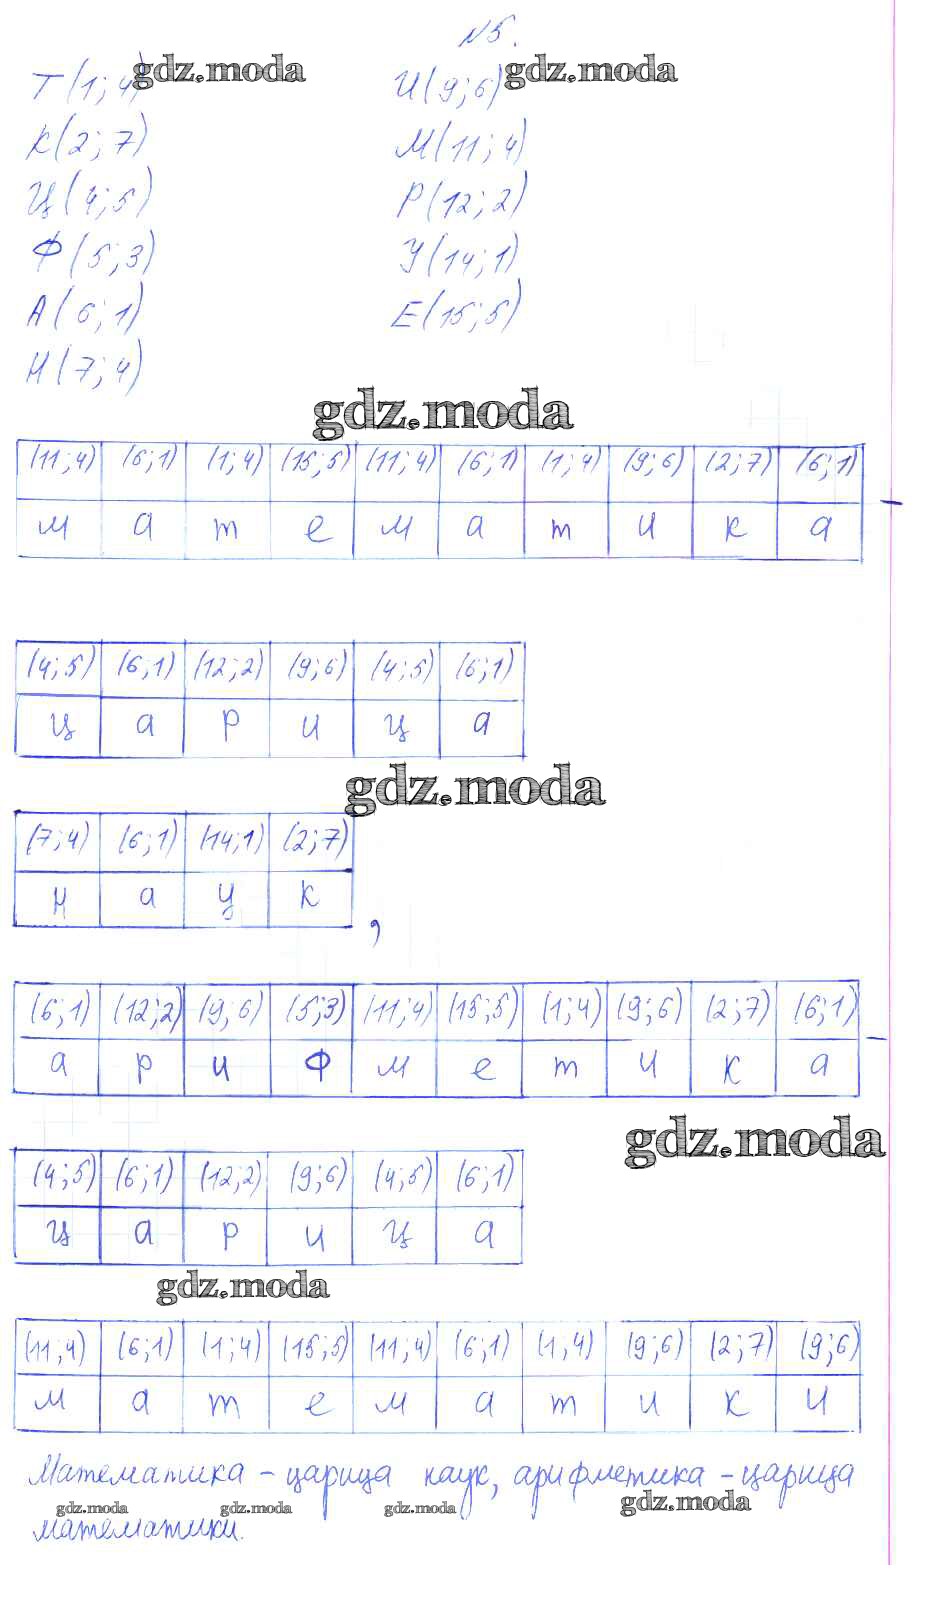 N5.
gdz.moda gdz.moda
Т(1; 4) И(9; 6)
К(2; 7) М(11; 4)
Ц(4; 5) Р(12; 2)
Ф(5; 3) У(14; 1)
А(6; 1) Е(15; 5)
Н(7; 4)
gdz.moda
(11; 4) (6; 1) (1; 4) (15; 5) (11; 4) (6; 1) (1; 4) (9; 6) (2; 7) (6; 1) –
м а т е м а т и к а
(4; 5) (6; 1) (12; 2) (9; 6) (4; 5) (6; 1)
ц а р и ц а
gdz.moda
(7; 4) (6; 1) (14; 1) (2; 7)
н а у к ,
(6; 1) (12; 2) (9; 6) (5; 3) (11; 4) (15; 5) (1; 4) (9; 6) (2; 7) (6; 1) –
а р и ф м е т и к а
gdz.moda
(4; 5) (6; 1) (12; 2) (9; 6) (4; 5) (6; 1)
ц а р и ц а
gdz.moda
(11; 4) (6; 1) (1; 4) (15; 5) (11; 4) (6; 1) (1; 4) (9; 6) (2; 7) (9; 6)
м а т е м а т и к и
Математика – царица наук, арифметика – царица
gdz.moda gdz.moda gdz.moda gdz.moda
математики.